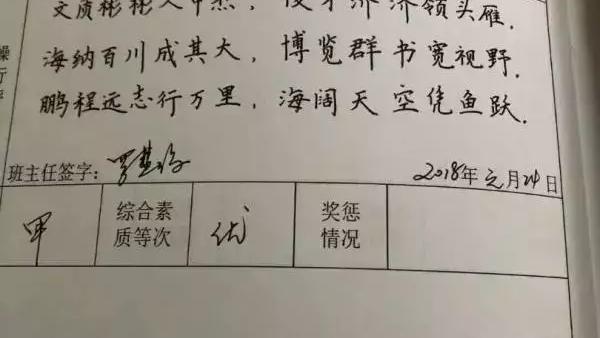 文质彬彬人中杰，俊才济济领头雁.
海纳百川成其大，博览群书宽视野.
鹏程远志行万里，海阔天空凭鱼跃.
操行
班主任签字：
2018年元月24日
甲
综合素
质等次
优
奖惩
情况